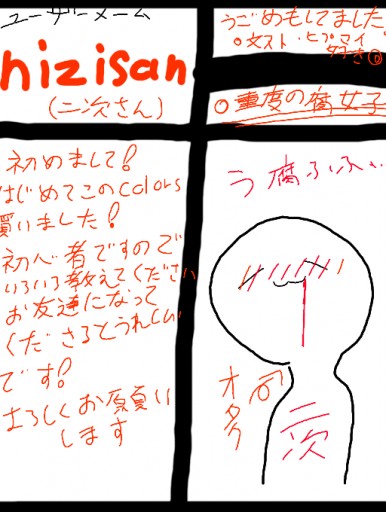 ユーザーネーム
hizisan
(二次さん)
うごめもしてました
○文スト・ヒプマイ
好き
○重度の腐女子
初めまして!
はじめてこのcolors
買いました!
初心者ですので
いろいろ教えてください
お友達になって
くださるとうれしい
です!
よろしくお願い
します
う腐ふふ
オタク
二次